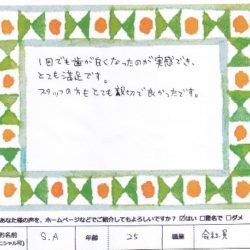 1回でも歯が白くなったのが実感でき、
とても満足です。
スタッフの方もとても親切で良かったです。
あなた様の声を、ホームページなどでご紹介してもよろしいですか？ ☑はい □匿名で □ダメ
お名前
(イニシャル可)
S.A
年齢
25
職業
会社員